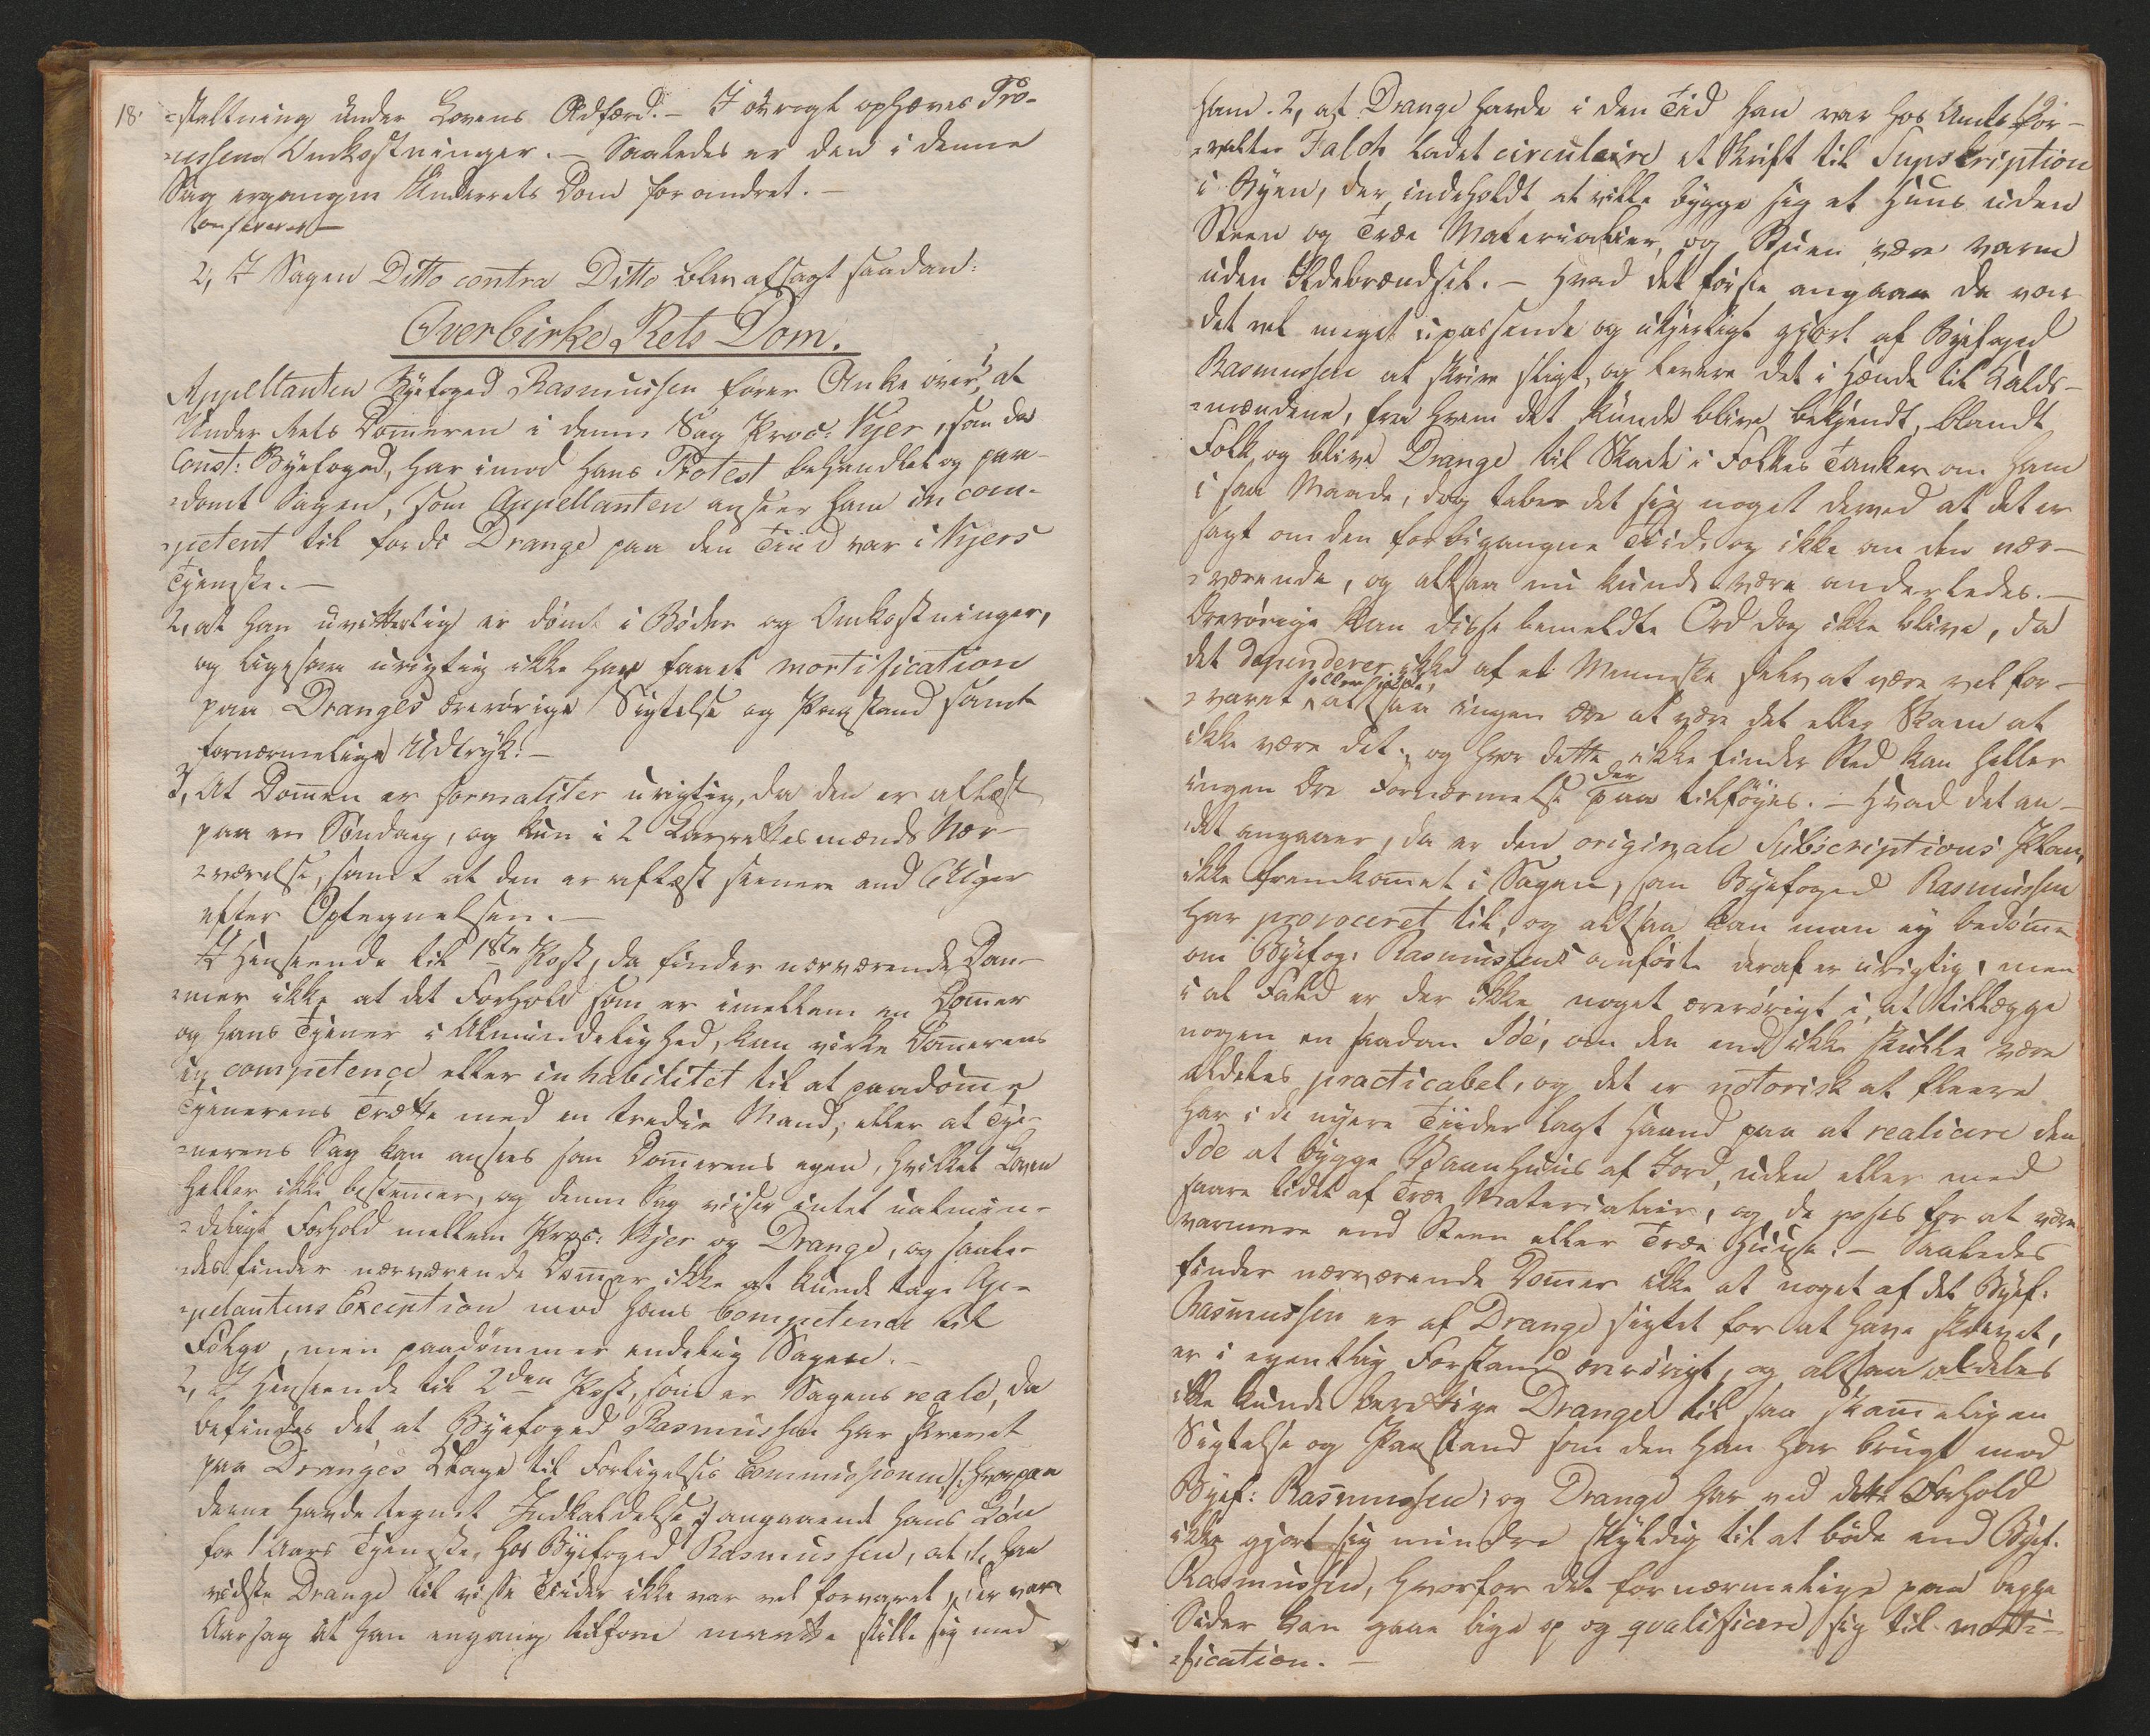 18.
-staltning under Lovens Adfærd. - I øvrigt ophæves Pro-
-cessens Omkostninger. - Saaledes er den i denne
Sag ergangen Underrets Dom forandret. -
Confereret
2, I Sagen Ditto contra Ditto blev afsagt saadan:
Overbirke Rets Dom.
Appellanten Byefoged Rasmussen fører Anke over 1, at
Under Rets Dommeren i denne Sag Proc: Kjer, som da
Const: Byefoged, har imod hans Protest behandlet og paa-
-dømt Sagen, som Appellanten anseer ham incom-
-petent til fordi Drange paa den Tiid var i Kjers
Tjeneste. -
2, at han uvitterlig er dømt i Bøder og Omkostninger,
og ligesom urigtig ikke har faaet mortification
paa Dranges ærerørige Sigtelse og Paastand samt
fornærmelige Udtryk. -
3, At Dommen er formaliter urigtig, da den er aflæst
paa en Søndag, og kun i 2 Laugrettesmænds Nær-
-værelse, samt at den er aflæst seenere end 6 Uger
efter Optagelsen. -
I Henseende til 1ste Post, da finder nærværende Dom-
-mer ikke at det Forhold som er imellem en Dommer
og hans Tjener i Almindelighed, kan virke Dommerens
in competence eller inhabilitet til at paadømme
Tjenerens Trætte med en tredie Mand, eller at Tje-
-nerens Sag kan ansees som Dommerens egen, hvilket Loven
heller ikke bestemmer, og denne Sag viiser intet ualmin-
-deligt Forhold mellem Proc: Kjer og Drange, og saale-
-des finder nærværende Dommer ikke at kunde tage Ap-
-pelantens Exception mod hans Competence til
Følge, men paadømmer endelig Sagen. -
2, I Henseende til 2den Post, som er Sagens reale, da
befindes det, at Byefoged Rasmussen har skrevet
paa Dranges Klage til Forligelses Commissionen /: hvorpaa
denne havde tegnet Indkaldelse :/ angaaende hans Løn
for 1 Aars Tjeneste, hos Byefoged Rasmussen, at 1, han
vidste Drange til visse Tiider ikke var vel forvaret, der var
Aarsag at han engang tilforn maatte skille sig med
ham. 2, at Drange havde i den Tid han var hos Amts For-
-valter Falch ladet circulaire et Skrift til Supskription
i Byen, der indeholdt at ville bygge sig et Huus uden
Steen og Træe Materialier, og Stuen være varm
uden Ildebrændsel. - Hvad det første angaaer da var
det vel meget upassende og ukjerligt gjort af Byefoged
Rasmussen at skrive sligt, og levere det i Hænde til Kalds-
-mændene, fra hvem det kunde blive bekjendt, blandt
Folk og blive Drange til Skade i Folkes Tanker om ham
i saa Maade, dog taber det sig noget derved at det er
sagt om den forbigangne Tiid, og ikke om den nær-
-værende, og altsaa nu kunde være anderledes. -
Ærerørige kan disse bemeldte Ord dog ikke blive, da
det dependerer ikke af et Menneske selv at være vel for-
-varet eller ikke, altsaa ingen Ære at være det eller Skam at
ikke være det, og hvor dette ikke finder Sted kan heller
ingen Ære Fornærmelse der paa tilføyes. - Hvad det an-
-det angaaer, da er den originale Subscriptions Plan,
ikke fremkommet i Sagen, som Byefoged Rasmussen
har provoceret til, og altsaa kan man ey bedømme
om Byefog: Rasmussens anførte deraf er urigtig, men
i al Fald er der ikke noget ærerørigt i, at tillægge
nogen en saadan Ide, om den end ikke skulle være
aldeles practicabel, og det er notorisk at fleere
har i de nyere Tiider lagt Haand paa at realicere den
Ide at bygge Vaanhuus af Jord, uden eller med
saare lidet af Træe Materialier, og de roses for at være
varmere end Steen eller Træe Huuse. - Saaledes
finder nærværende Dommer ikke at noget af det Byef:
Rasmussen er af Drange sigtet for at have skrevet,
er i egentlig Forstand ærerørigt, og altsaa aldeles
ikke kunde berettige Drange til saa skammelig en
Sigtelse og Paastand som den han har brugt mod
Byef: Rasmussen, og Drange har ved dette Forhold
ikke gjort sig mindre skyldig til at bøde end Byef.
Rasmussen, hvorfor det fornærmelige paa begge
Sider kan gaae lige op og qvalificere sig til morti-
-fication. -